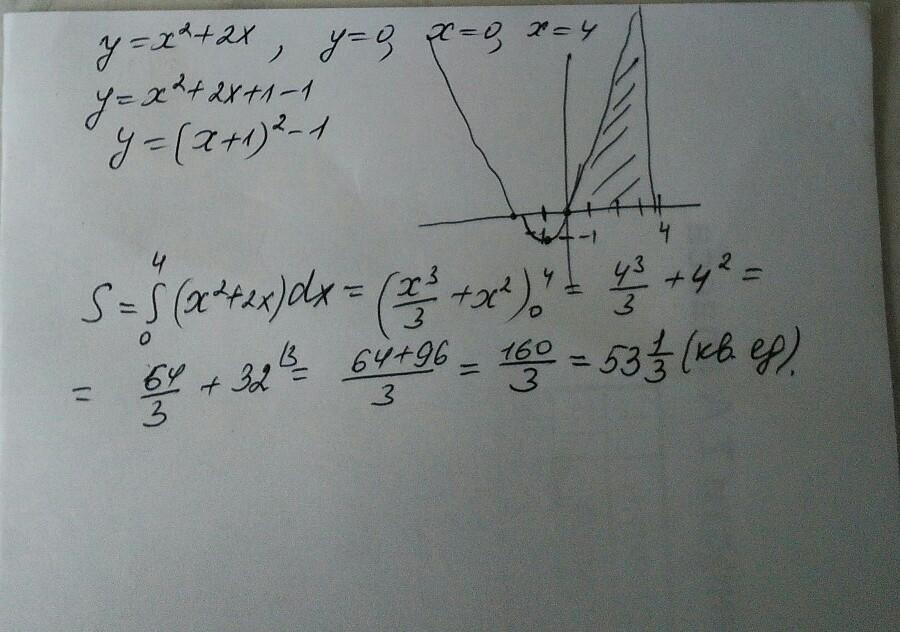 y = x² + 2x, y = 0, x = 0, x = 4
y = x² + 2x + 1 - 1
y = (x + 1)² - 1
-1 -1 4
S = ∫₀⁴ (x² + 2x) dx = (x³/3 + x²)₀⁴ = 4³/3 + 4² =
= 64/3 + 32^(3 = (64 + 96)/3 = 160/3 = 53 1/3 (кв. ед).